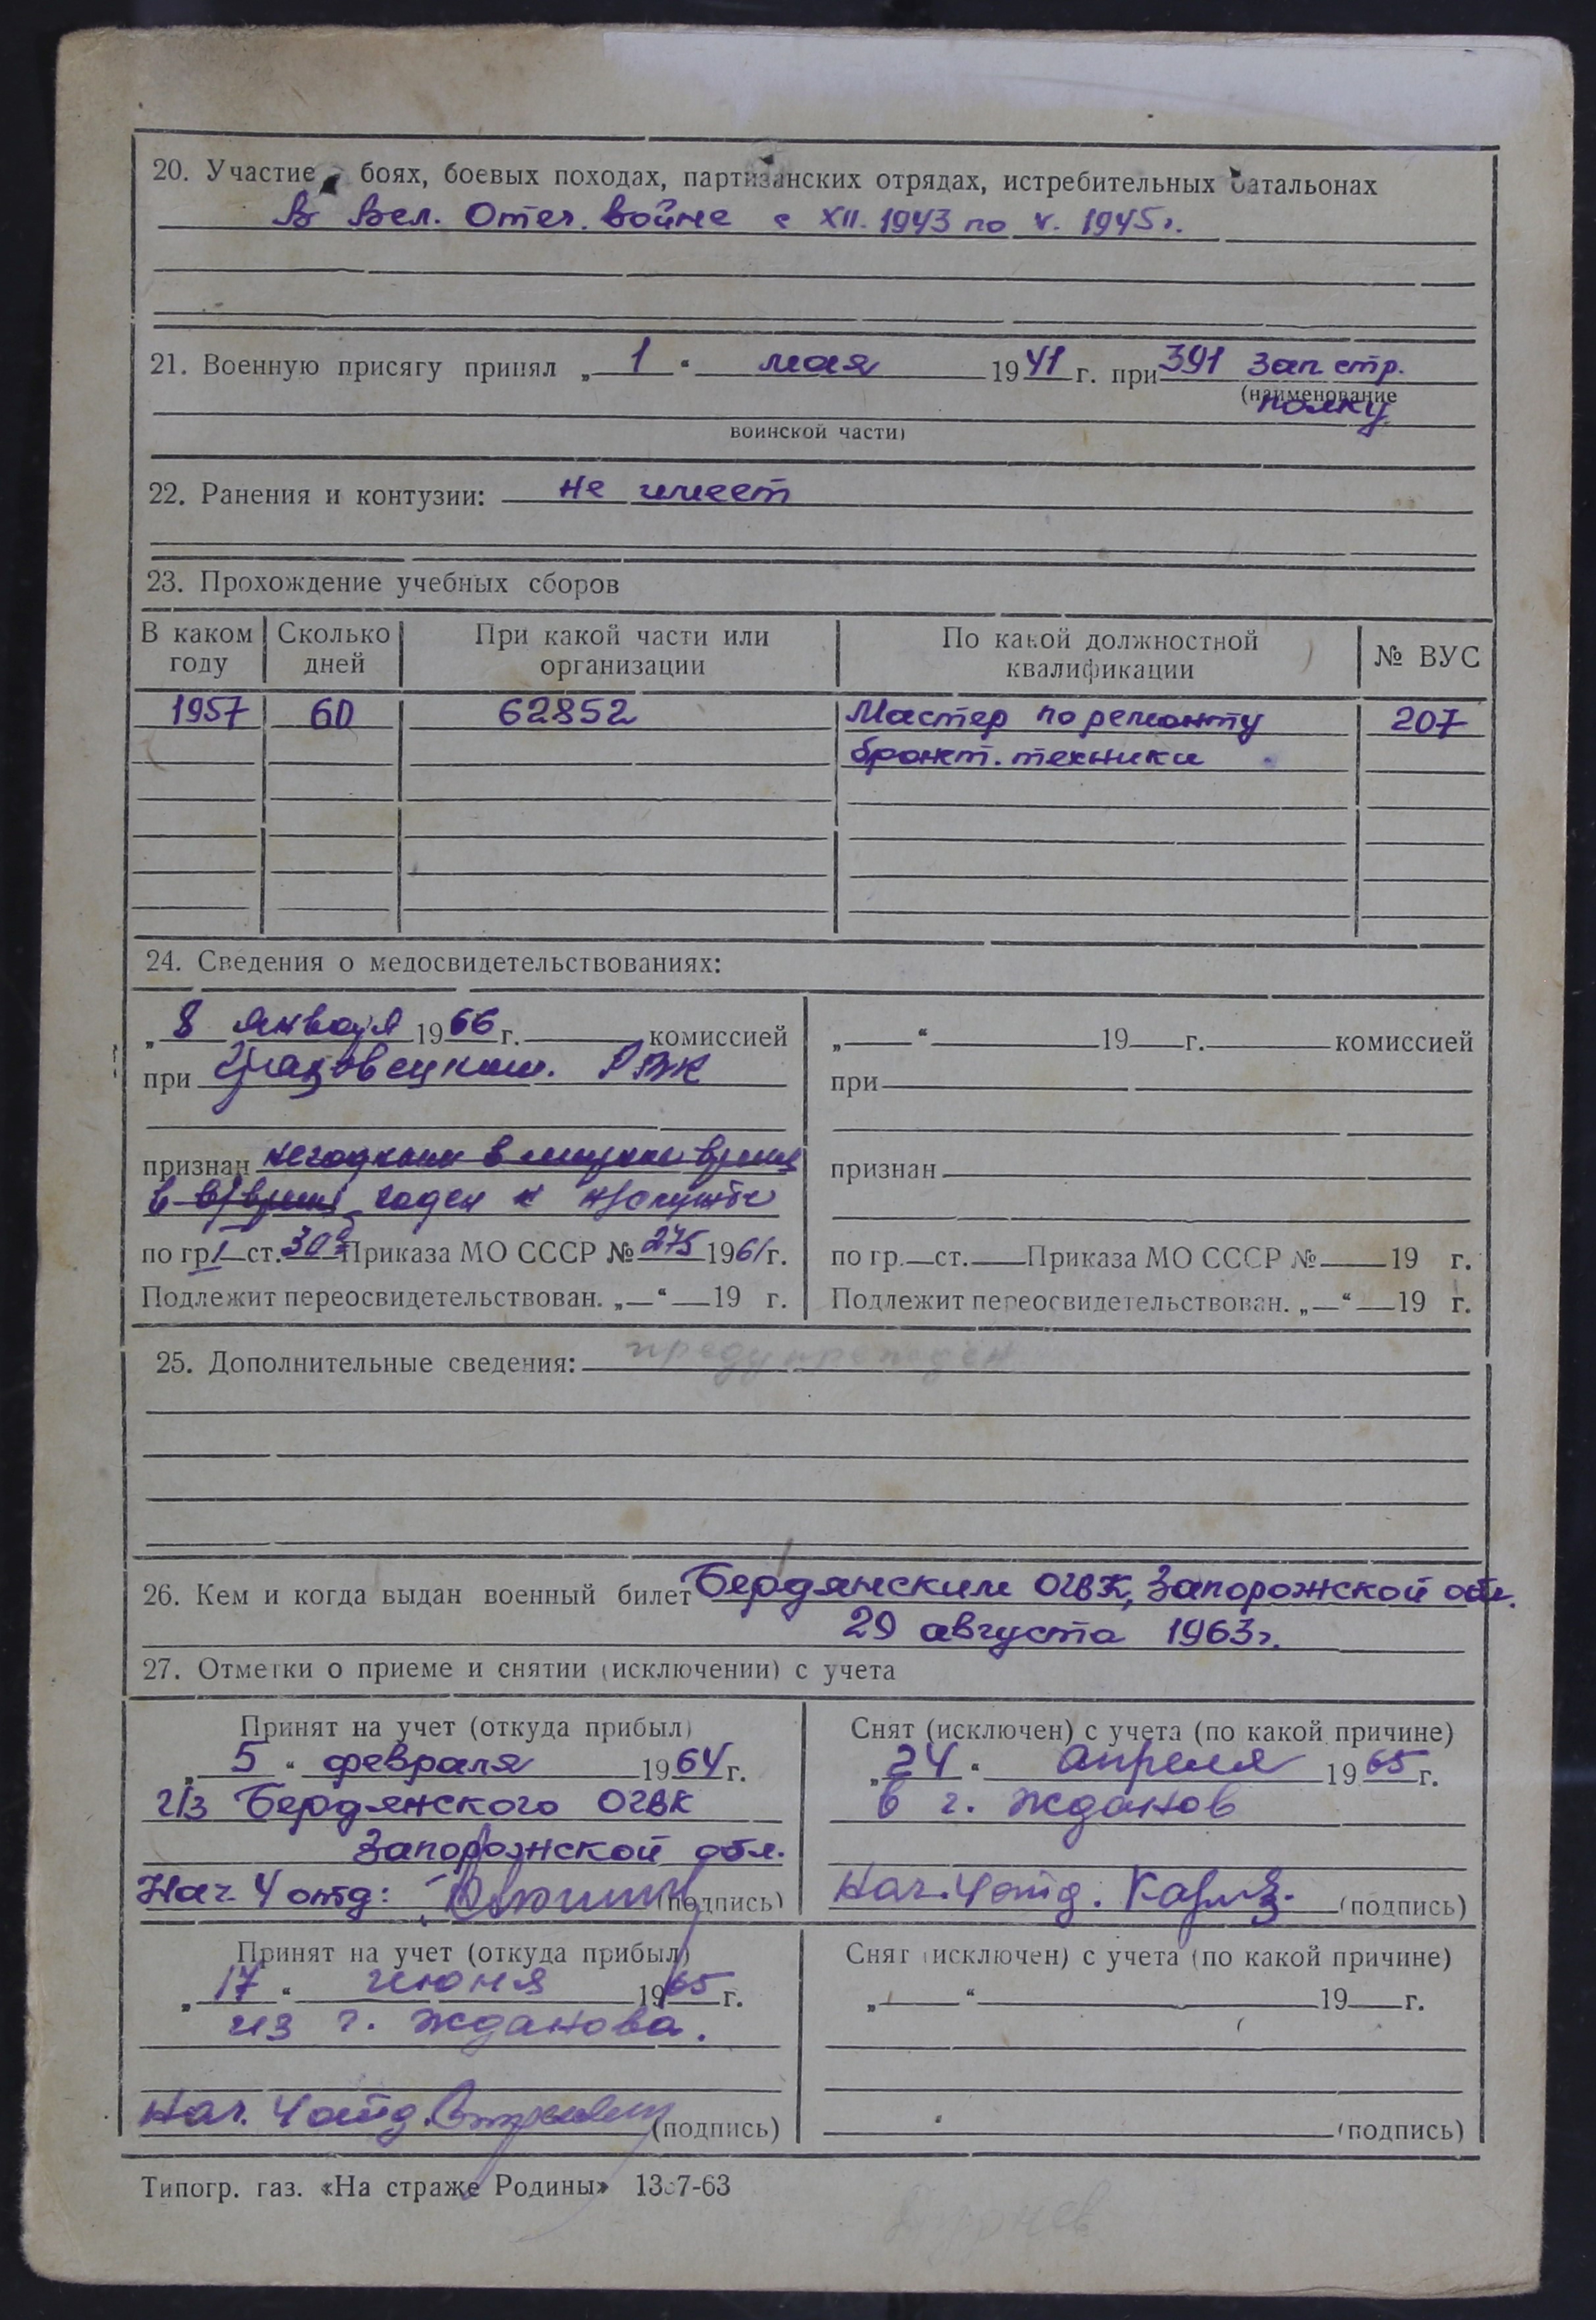 20. Участие в боях, боевых походах, партизанских отрядах, истребительных батальонах
В Вел. Отеч. Войне с XII. 1943 по V. 1945 г.
21. Военную присягу принял „ 1 “ мая 1941 г. при 391 зап стр.
(наименование
полку
воинской части)
22. Ранения и контузии: не имеет
23. Прохождение учебных сборов
В каком году
Сколько дней
При какой части или организации
По какой должностной квалификации
№ ВУС
1957 60 62852 Мастер по ремонту 207
бронет. техники
24. Сведения о медосвидетельствованиях:
„ 8 января 1966 г. комиссией
при РВК
признан негодным в мирное время
в в/время годен к н/службе
по гр I ст. 30 Приказа МО СССР № 275 1961 г.
Подлежит переосвидетельствован. „ “ 19 г.
„ “ 19 г. комиссией
при
признан
по гр. ст. Приказа МО СССР № 19 г.
Подлежит переосвидетельствован. „ “ 19 г.
25. Дополнительные сведения: предупрежден
26. Кем и когда выдан военный билет Бердянским ОГВК, Запорожской обл.
29 августа 1963 г.
27. Отметки о приеме и снятии (исключении) с учета
Принят на учет (откуда прибыл)
„ 5 “ февраля 1964 г.
из Бердянского ОГВК
Запорожской обл.
Нач 4 отд: (подпись)
Снят (исключен) с учета (по какой причине)
„ 24 “ апреля 1965 г.
в г. Жданов
Нач. 4 отд. (подпись)
Принят на учет (откуда прибыл)
„ 17 “ июня 1965 г.
из г. Жданова.
Нач. 4 отд. (подпись)
Снят (исключен) с учета (по какой причине)
„ “ 19 г.
(подпись)
Типогр. газ. «На страже Родины» 1367-63